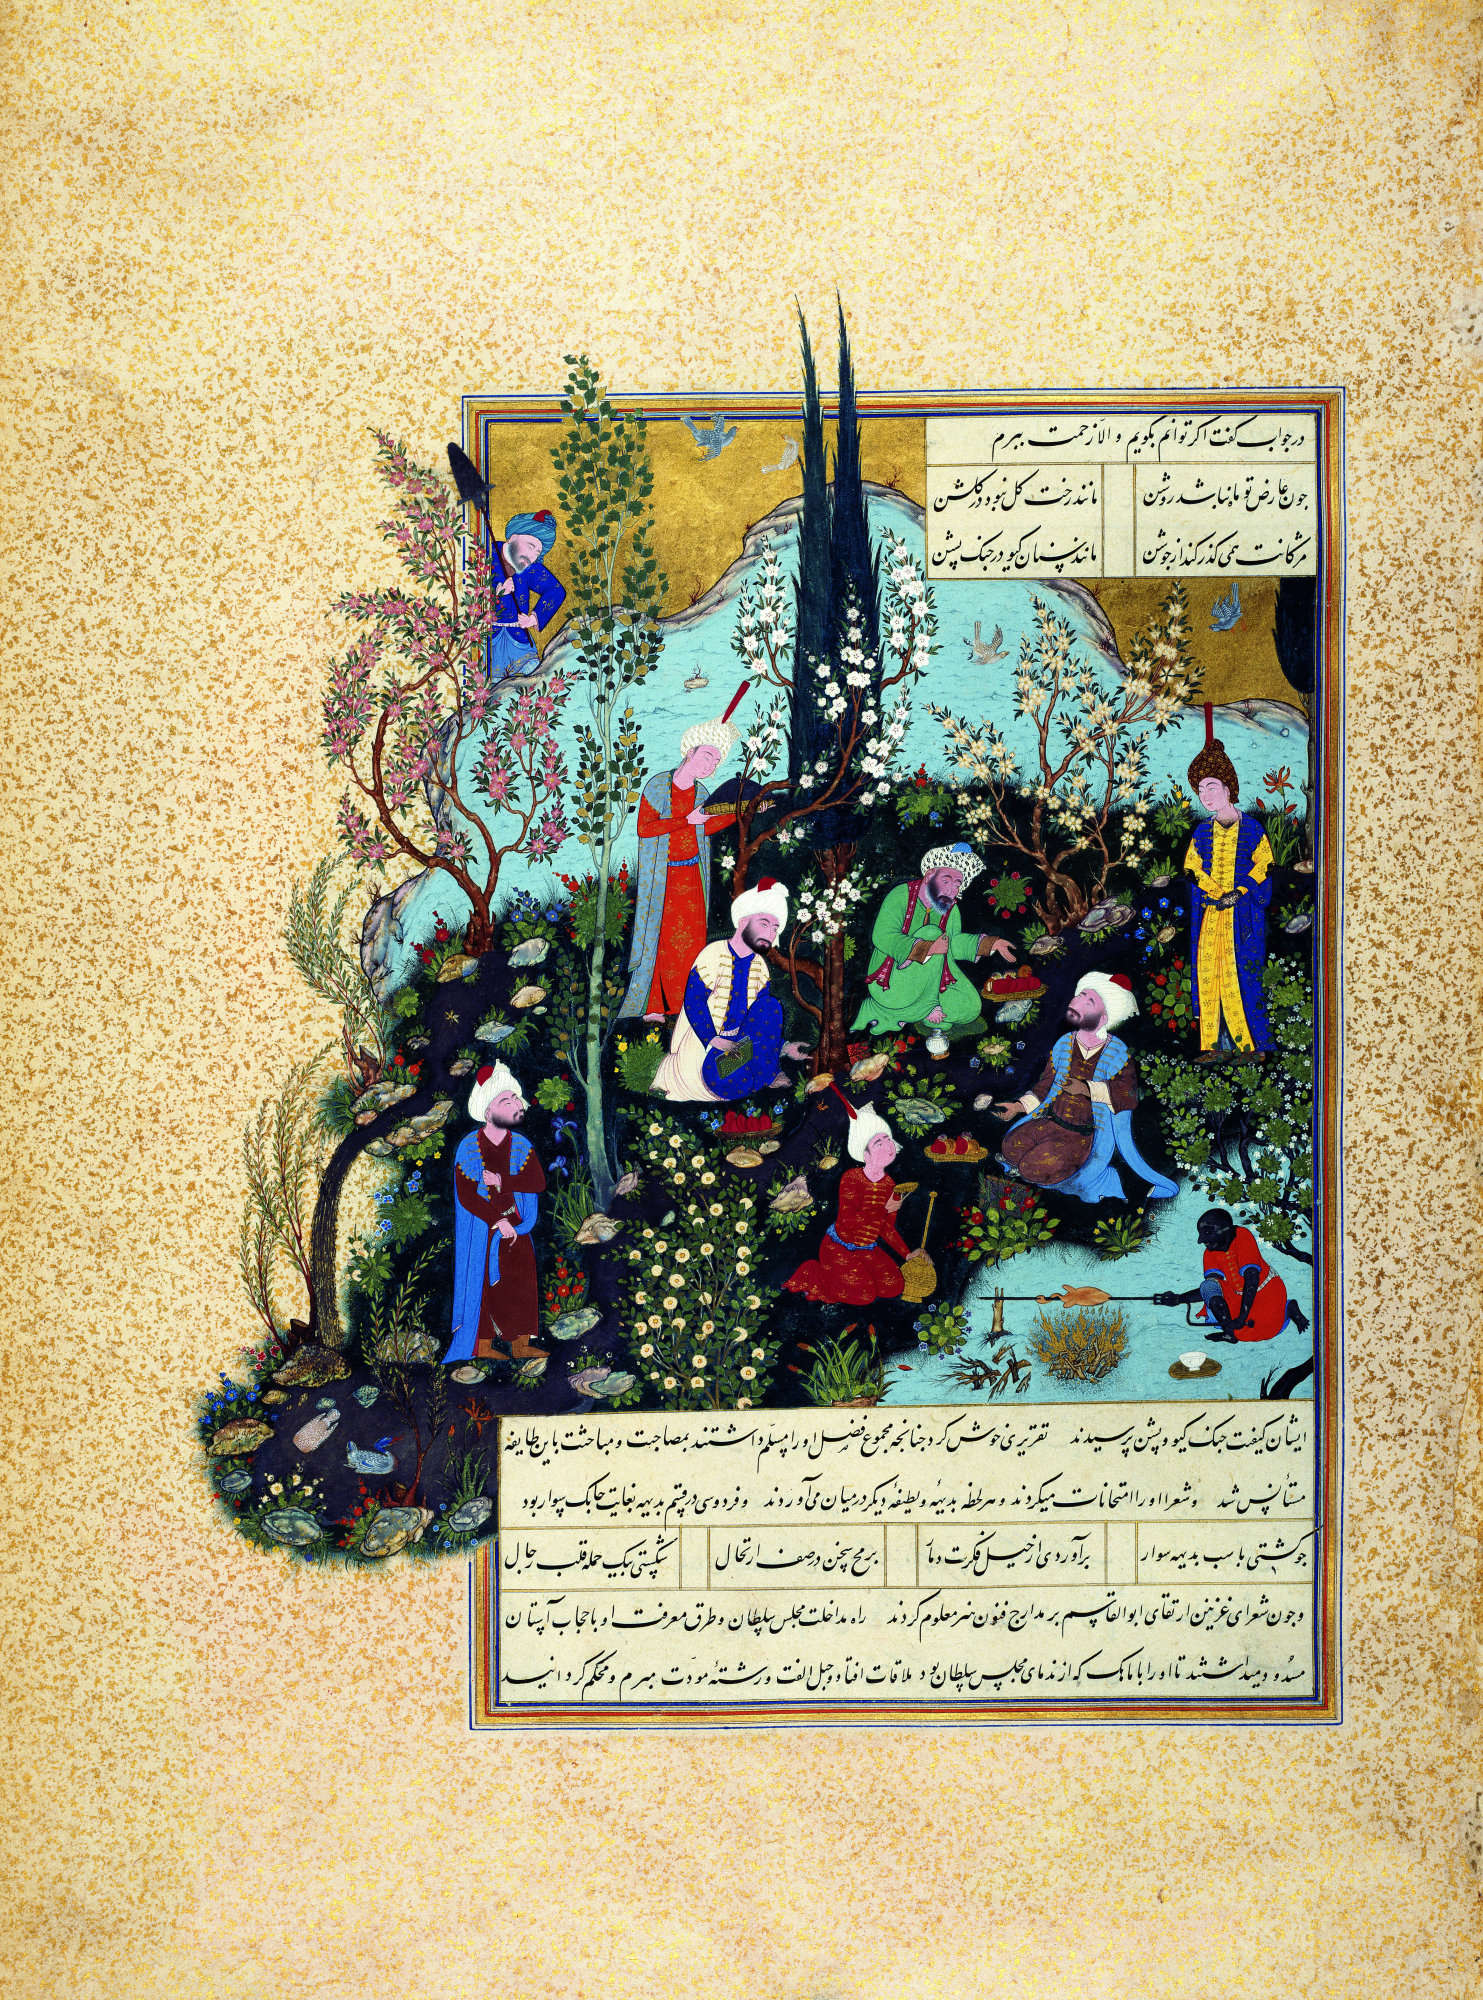 در جواب گفت اکر توانم بکویم و الا زحمت ببرم
جون عارض تو ماه نباشد روشن مانند رخت کل نبود در کلشن
مژکانت همی کذر کند از جوشن مانند سنان کیو در جنک پشن
ایشان کیفیت جنک کیو و پشن پرسیدند تقریری خوش کرد جنانجه مجموع فضل او را مسلم داشتند بمصاحبت و مباحثت با این طایفه
مستأنس شد و شعرا او را امتحانات میکردند و هر لحظه بدیهه و لطیفهٔ دیکر در میان می آوردند و فردوسی در قسم بدیهه بغایت جابک سوار بود
جو کشتی با سب بدیهه سوار برآوردی از خیل فکرت دمار برمح سخن در صف ارتحال شکستی بیک حمله قلب رجال
و جون شعرای غزنین ارتقای ابوالقاسم بر مدارج فنون هنر معلوم کردند راه مداخلت مجلس سلطان و طرق معرفت او با حجاب آستان
مسدود میداشتند تا او را با ماهک که از ندمای مجلس سلطان بود ملاقات افتاد و حبل الفت و رشتهٔ مودّت مبرم و محکم کردانیـد